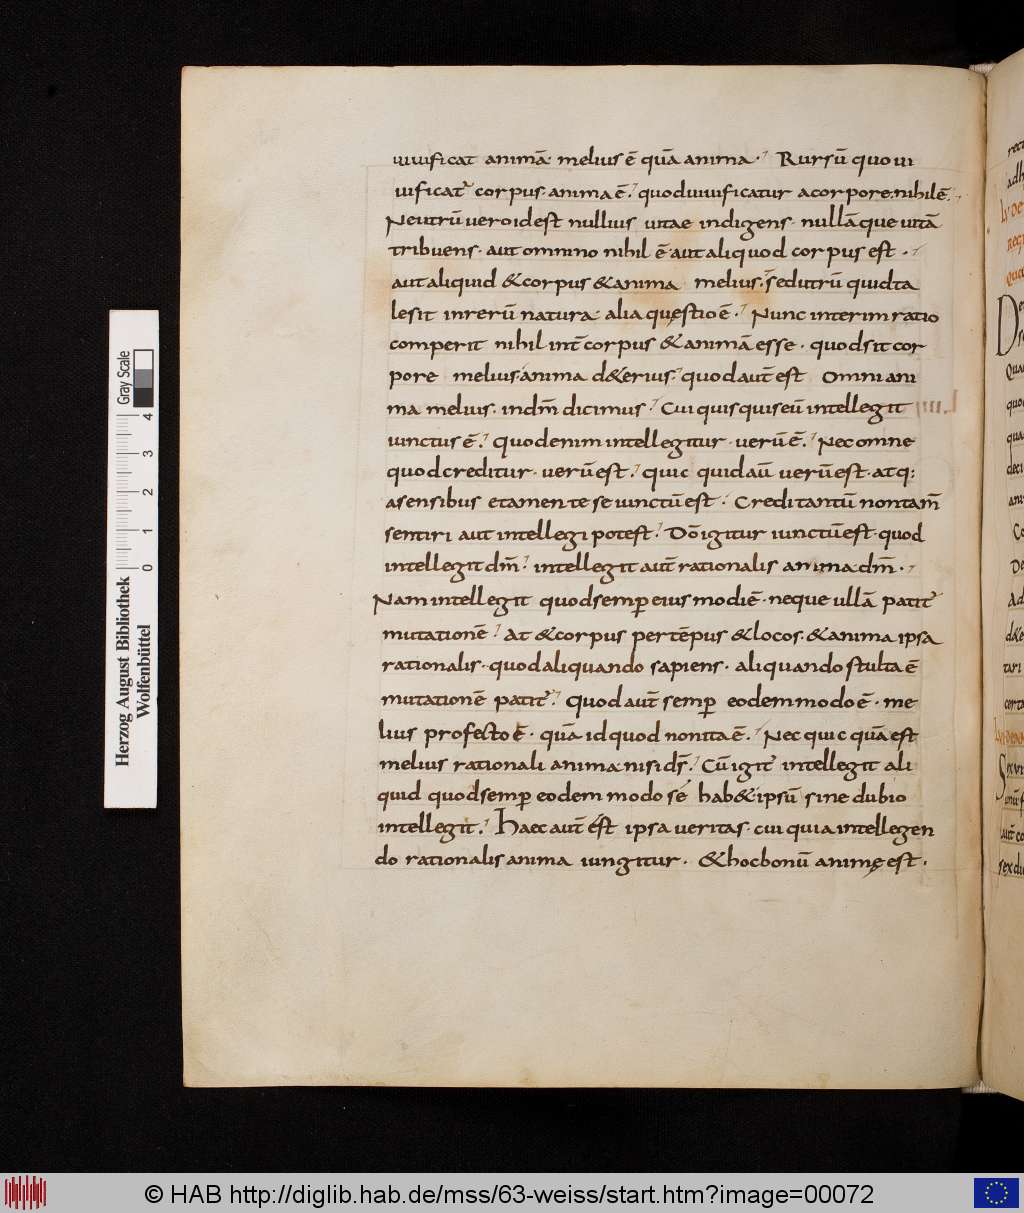 uiuificat animā· melius ē quā anima· Rursū quo ui
uificat̃ corpus· anima ē· quod uiuificatur a corpore· nihil ē·
Neutrū uero id est nullius uitae indigens· nullāque uitā
tribuens· aut omnino nihil ē· aut aliquod corpus est·
aut aliquid & corpus & anima melius· sed utrū quid ta
le sit in rerū natura· alia quęstio ē· Nunc interim ratio
comperit nihil int̃ corpus & animā esse· quod sit cor
pore melius· anima d&erius· quod aut̃ est Omni ani
ma melius· in dm̄ dicimus· Cui quisquis eū intellegit
iunctus ē· quod enim intellegitur· uerū ē· Nec omne
quod creditur· uerū est· quic quid aū uerū est· atq:
a sensibus et a mente seiunctū est· Credi tantū non tam̄
sentiri aut intellegi potest· Dō igitur iunctū est· quod
intellegit dm̄· intellegit aut̃ rationalis anima dm̄·
Nam intellegit quod semp eiusmodi ē· neque ullā patit̃
mutationē· At & corpus per tēpus & locos· & anima ipsa
rationalis· quod aliquando sapiens· aliquando stulta ē
mutationē patit̃· quod aut̃ semp eodem modo ē· me
lius profecto ē· quā id quod non ita ē· Nec quic quā est
melius rationali anima nisi ds̄· Cū igit̃ intellegit ali
quid quod semp eodem modo se hab& ipsū sine dubio
intellegit· Haec aut̃ est ipsa ueritas· cui quia intellegen
do rationalis anima iungitur· & hoc bonū animę est·
Herzog August Bibliothek
Wolfenbüttel
Gray Scale
0 1 2 3 4
© HAB http://diglib.hab.de/mss/63-weiss/start.htm?image=00072